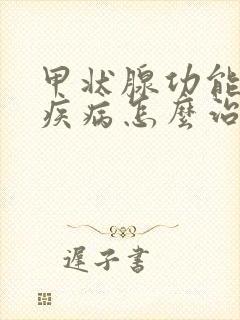 甲状腺功能
疾病怎麼治
遲子書